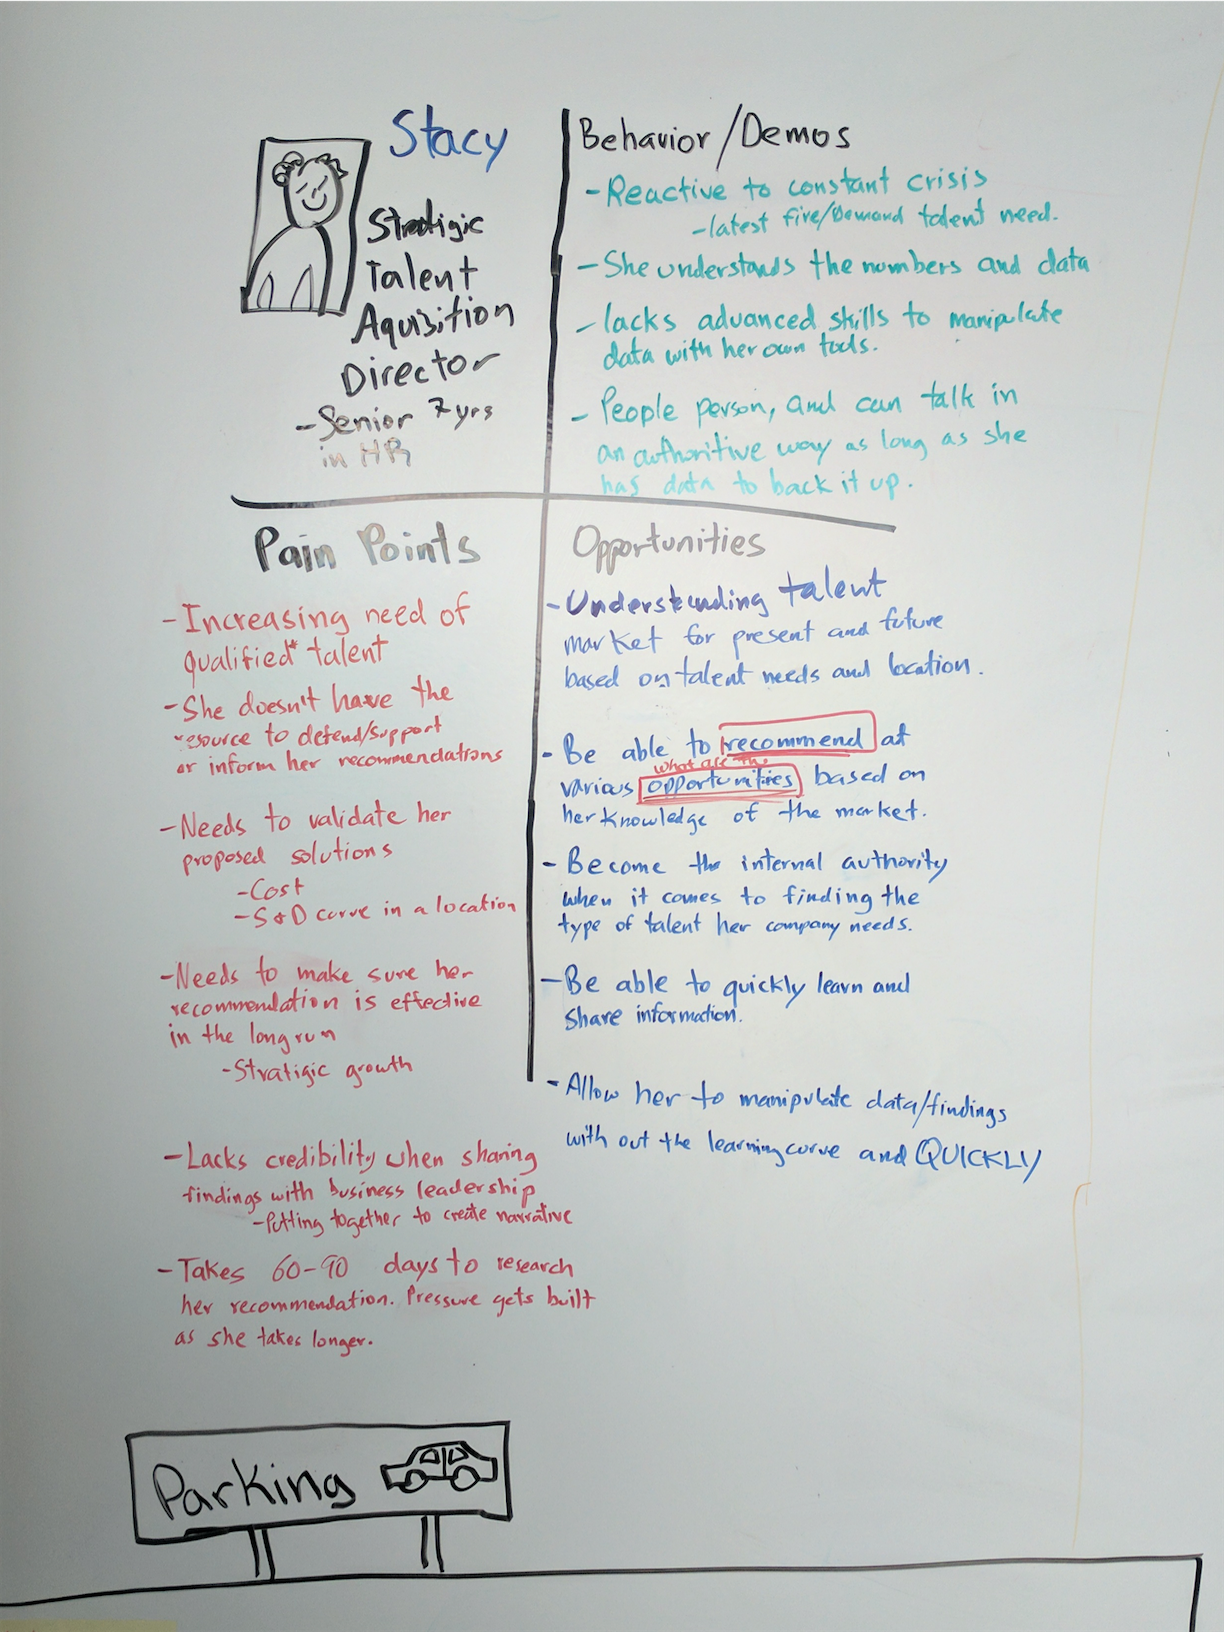 Stacy
Stratigic
Talent
Aquisition
Director
- Senior 7 yrs
in HR
Behavior/Demos
- Reactive to constant crisis
- latest fire/Demand talent need.
- She understands the numbers and data
- lacks advanced skills to manipulate
data with her own tools.
- People person, and can talk in
an authoritive way as long as she
has data to back it up.
Pain Points
- Increasing need of
qualified* talent
- She doesn't have the
resource to defend/support
or inform her recommendations
- Needs to validate her
proposed solutions
- Cost
- S & D curve in a location
- Needs to make sure her
recommendation is effective
in the long run
- Stratigic growth
- Lacks credibility when sharing
findings with business leadership
- Putting together to create narrative
- Takes 60-90 days to research
her recommendation. Pressure gets built
as she takes longer.
Opportunities
- Understanding talent
market for present and future
based on talent needs and location.
- Be able to recommend at
what are the
various opportunities based on
her knowledge of the market.
- Become the internal authority
when it comes to finding the
type of talent her company needs.
- Be able to quickly learn and
share information.
- Allow her to manipulate data/findings
with out the learning curve and QUICKLY
Parking